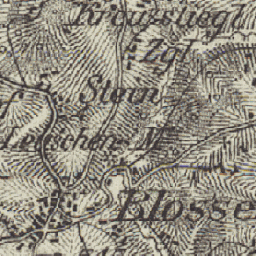 Kreuzsliegl
Zgl.
Stein
Leischen M.
Blosse